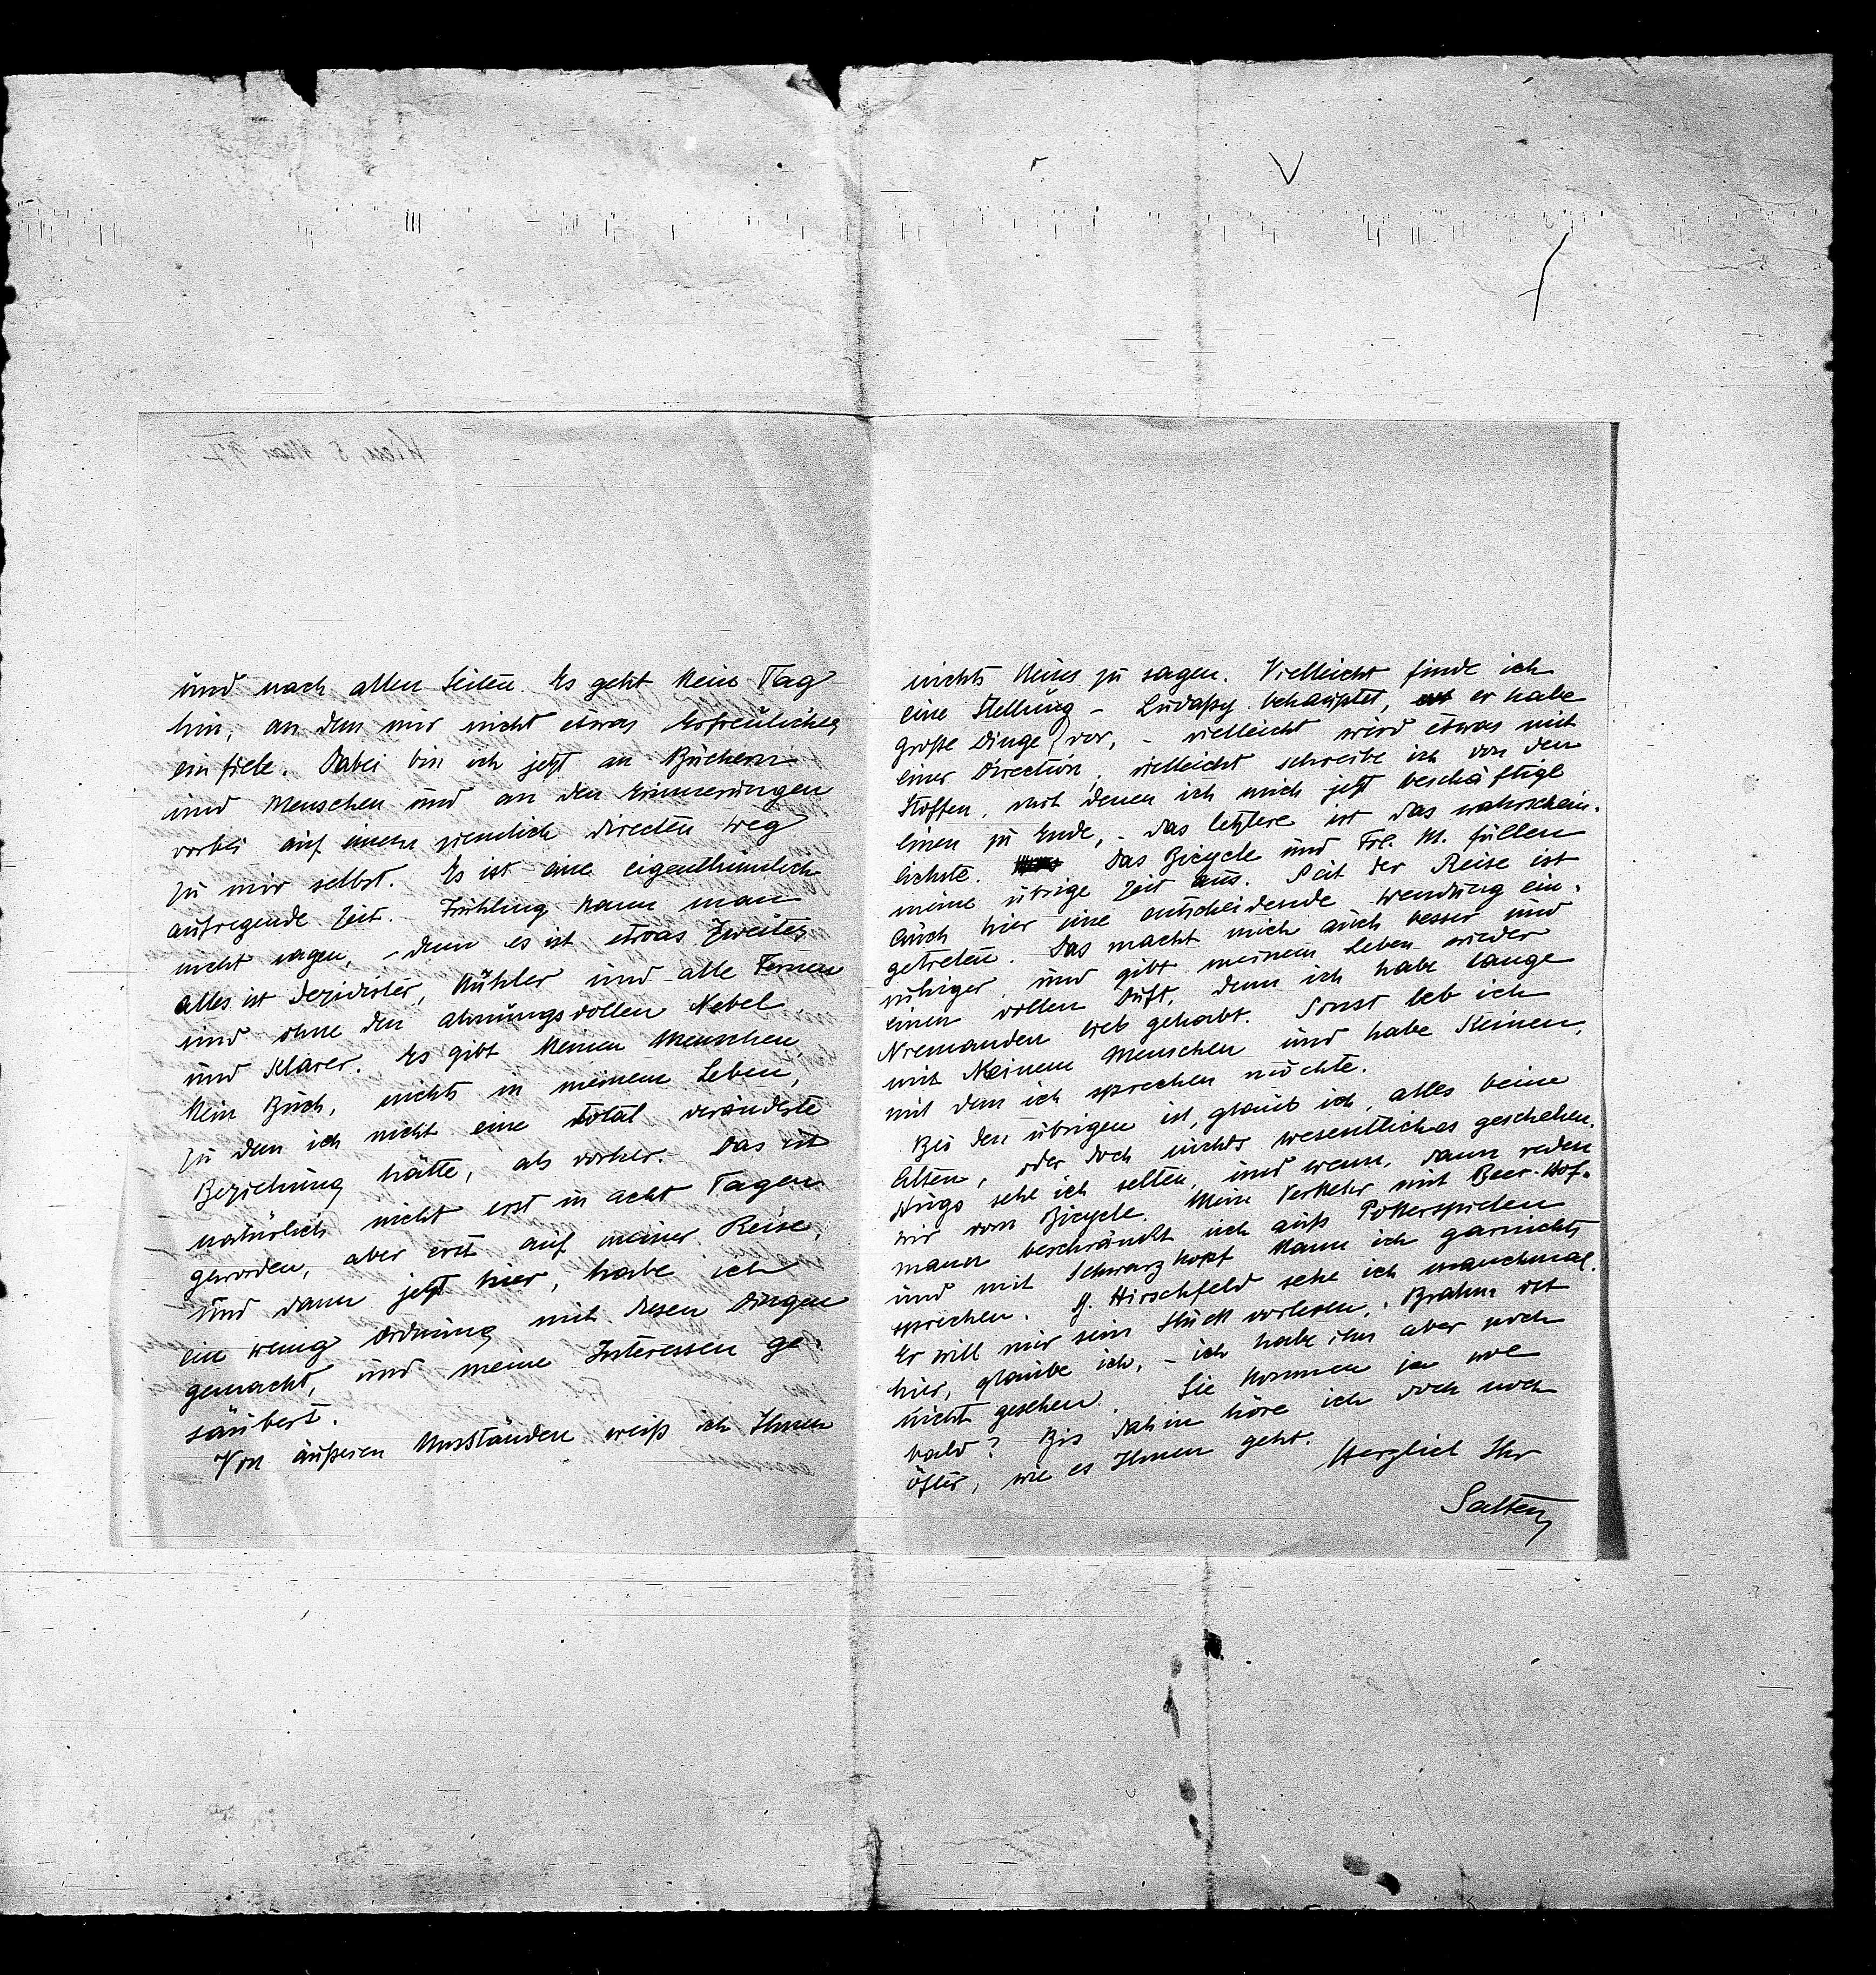 und nach allen Seiten. Es geht kein Tag
hin, an dem mir nicht etwas Erfreuliches
einfiele. Dabei bin ich jetzt an Büchern
und Menschen und an den Erinnerungen
vorbei auf einem ziemlich directen Weg
zu mir selbst. Es ist eine eigenthümlich
aufregende Zeit. Frühling kann man
nicht sagen, – denn es ist etwas Zweites,
alles ist dezidirter, kühler und alle Fernen
sind ohne den ahnungsvollen Nebel
und klarer. Es gibt keinen Menschen,
kein Buch, nichts in meinem Leben,
zu dem ich nicht eine total veränderte
Beziehung hätte, als vorher. Das ist
natürlich nicht erst in acht Tagen
geworden, aber erst auf meiner Reise,
und dann jetzt hier, habe ich
ein wenig Ordnung mit diesen Dingen
gemacht, und meine Interessen ge-
säubert.
Von äußeren Umständen weiß ich Ihnen
nichts Neues zu sagen. Vielleicht finde ich
eine Stellung – Ludaßy behauptet, er habe
große Dinge vor, – vielleicht wird etwas mit
einer Direction, vielleicht schreibe ich von den
Stoffen, mit denen ich mich jetzt beschäftige
einen zu Ende, – das letztere ist das wahrschein-
lichste. Das Bicycle und Frl. M. füllen
meine übrige Zeit aus. Seit der Reise ist
auch hier eine entscheidende Wendung ein-
getreten. Das macht mich auch besser und
ruhiger, und gibt meinem Leben wieder
einen vollen Duft, denn ich habe lange
Niemanden lieb gehabt. Sonst leb ich
mit keinem Menschen und habe Keinen,
mit dem ich sprechen möchte.
Bei den übrigen ist, glaub ich, alles beim
Alten, oder doch nichts wesentliches geschehen.
Hugo sehe ich selten, und wenn, dann reden
wir vom Bicycle. Mein Verkehr mit Beer-Hof-
mann beschränkt sich aufs Pokerspielen
und mit Schwarzkopf kann ich garnichts
sprechen. G. Hirschfeld sehe ich manchmal.
Er will mir sein Stück vorlesen. Brahm ist
hier, glaube ich, – ich habe ihn aber noch
nicht gesehen. Sie kommen ja wol
bald? Bis dahin höre ich doch noch
öfter, wie es Ihnen geht.
Herzlich Ihr
Salten